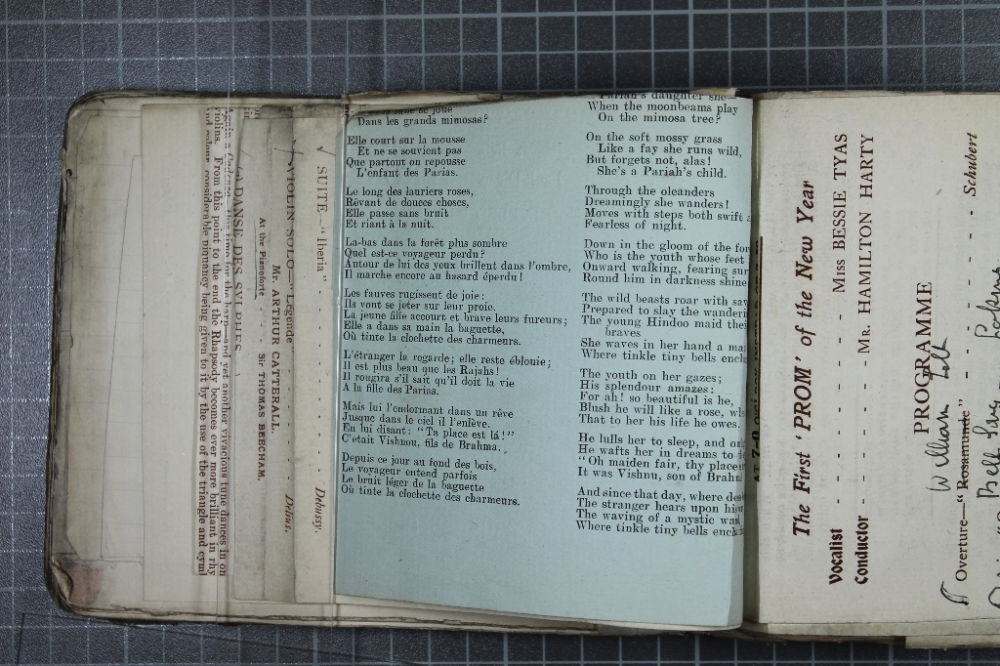 again a Cadenza, this time for the harp—and yet another vivacious tune dances in on
violins. From this point to the end the Rhapsody becomes ever more brilliant in rhy
and colour considerable piquancy being given to it by the use of the triangle and cym
DANSE DES SYLPHES
At the Pianoforte - - Sir THOMAS BEECHAM.
Mr. ARTHUR CATTERALL.
VIOLIN SOLO—"Légende" - - - - Delius.
SUITE "Iberia" - - - - Debussy.
Dans les grands mimosas?
Elle court sur la mousse
Et ne se souvient pas
Que partout on repousse
L'enfant des Parias.
Le long des lauriers roses,
Rêvant de douces choses,
Elle passe sans bruit
Et riant à la nuit.
La-bas dans la forêt plus sombre
Quel est-ce voyageur perdu?
Autour de lui des yeux brillent dans l'ombre,
Il marche encore au hasard éperdu!
Les fauves rugissent de joie:
Ils vont se jeter sur leur proie.
La jeune fille accourt et brave leurs fureurs;
Elle a dans sa main la baguette,
Où tinte la clochette des charmeurs.
L'étranger la regarde; elle reste éblouie;
Il est plus beau que les Rajahs!
Il rougira s'il sait qu'il doit la vie
A la fille des Parias.
Mais lui l'endormant dans un rêve
Jusque dans le ciel il l'enlève.
En lui disant: "Ta place est là!"
C'était Vishnou, fils de Brahma.
Depuis ce jour au fond des bois,
Le voyageur entend parfois
Le bruit léger de la baguette
Où tinte la clochette des charmeurs.
Pariah's daughter she
When the moonbeams play
On the mimosa tree?
On the soft mossy grass
Like a fay she runs wild,
But forgets not, alas!
She's a Pariah's child.
Through the oleanders
Dreamingly she wanders!
Moves with steps both swift
Fearless of night.
Down in the gloom of the for
Who is the youth whose feet
Onward walking, fearing sur
Round him in darkness shine
The wild beasts roar with sav
Prepared to slay the wanderi
The young Hindoo maid thei
braves
She waves in her hand a ma
Where tinkle tiny bells encl
The youth on her gazes;
His splendour amazes;
For ah! so beautiful is he,
Blush he will like a rose, wh
That to her his life he owes.
He lulls her to sleep, and on
He wafts her in dreams to
"Oh maiden fair, thy place
It was Vishnu, son of Brahm
And since that day, where de
The stranger hears upon his
The waving of a mystic wan
Where tinkle tiny bells encl
The First 'PROM' of the New Year
Vocalist - - - - Miss BESSIE TYAS
Conductor - - - Mr. HAMILTON HARTY
PROGRAMME
William Tell
Overture—"Rosamunde" - - - - Schubert